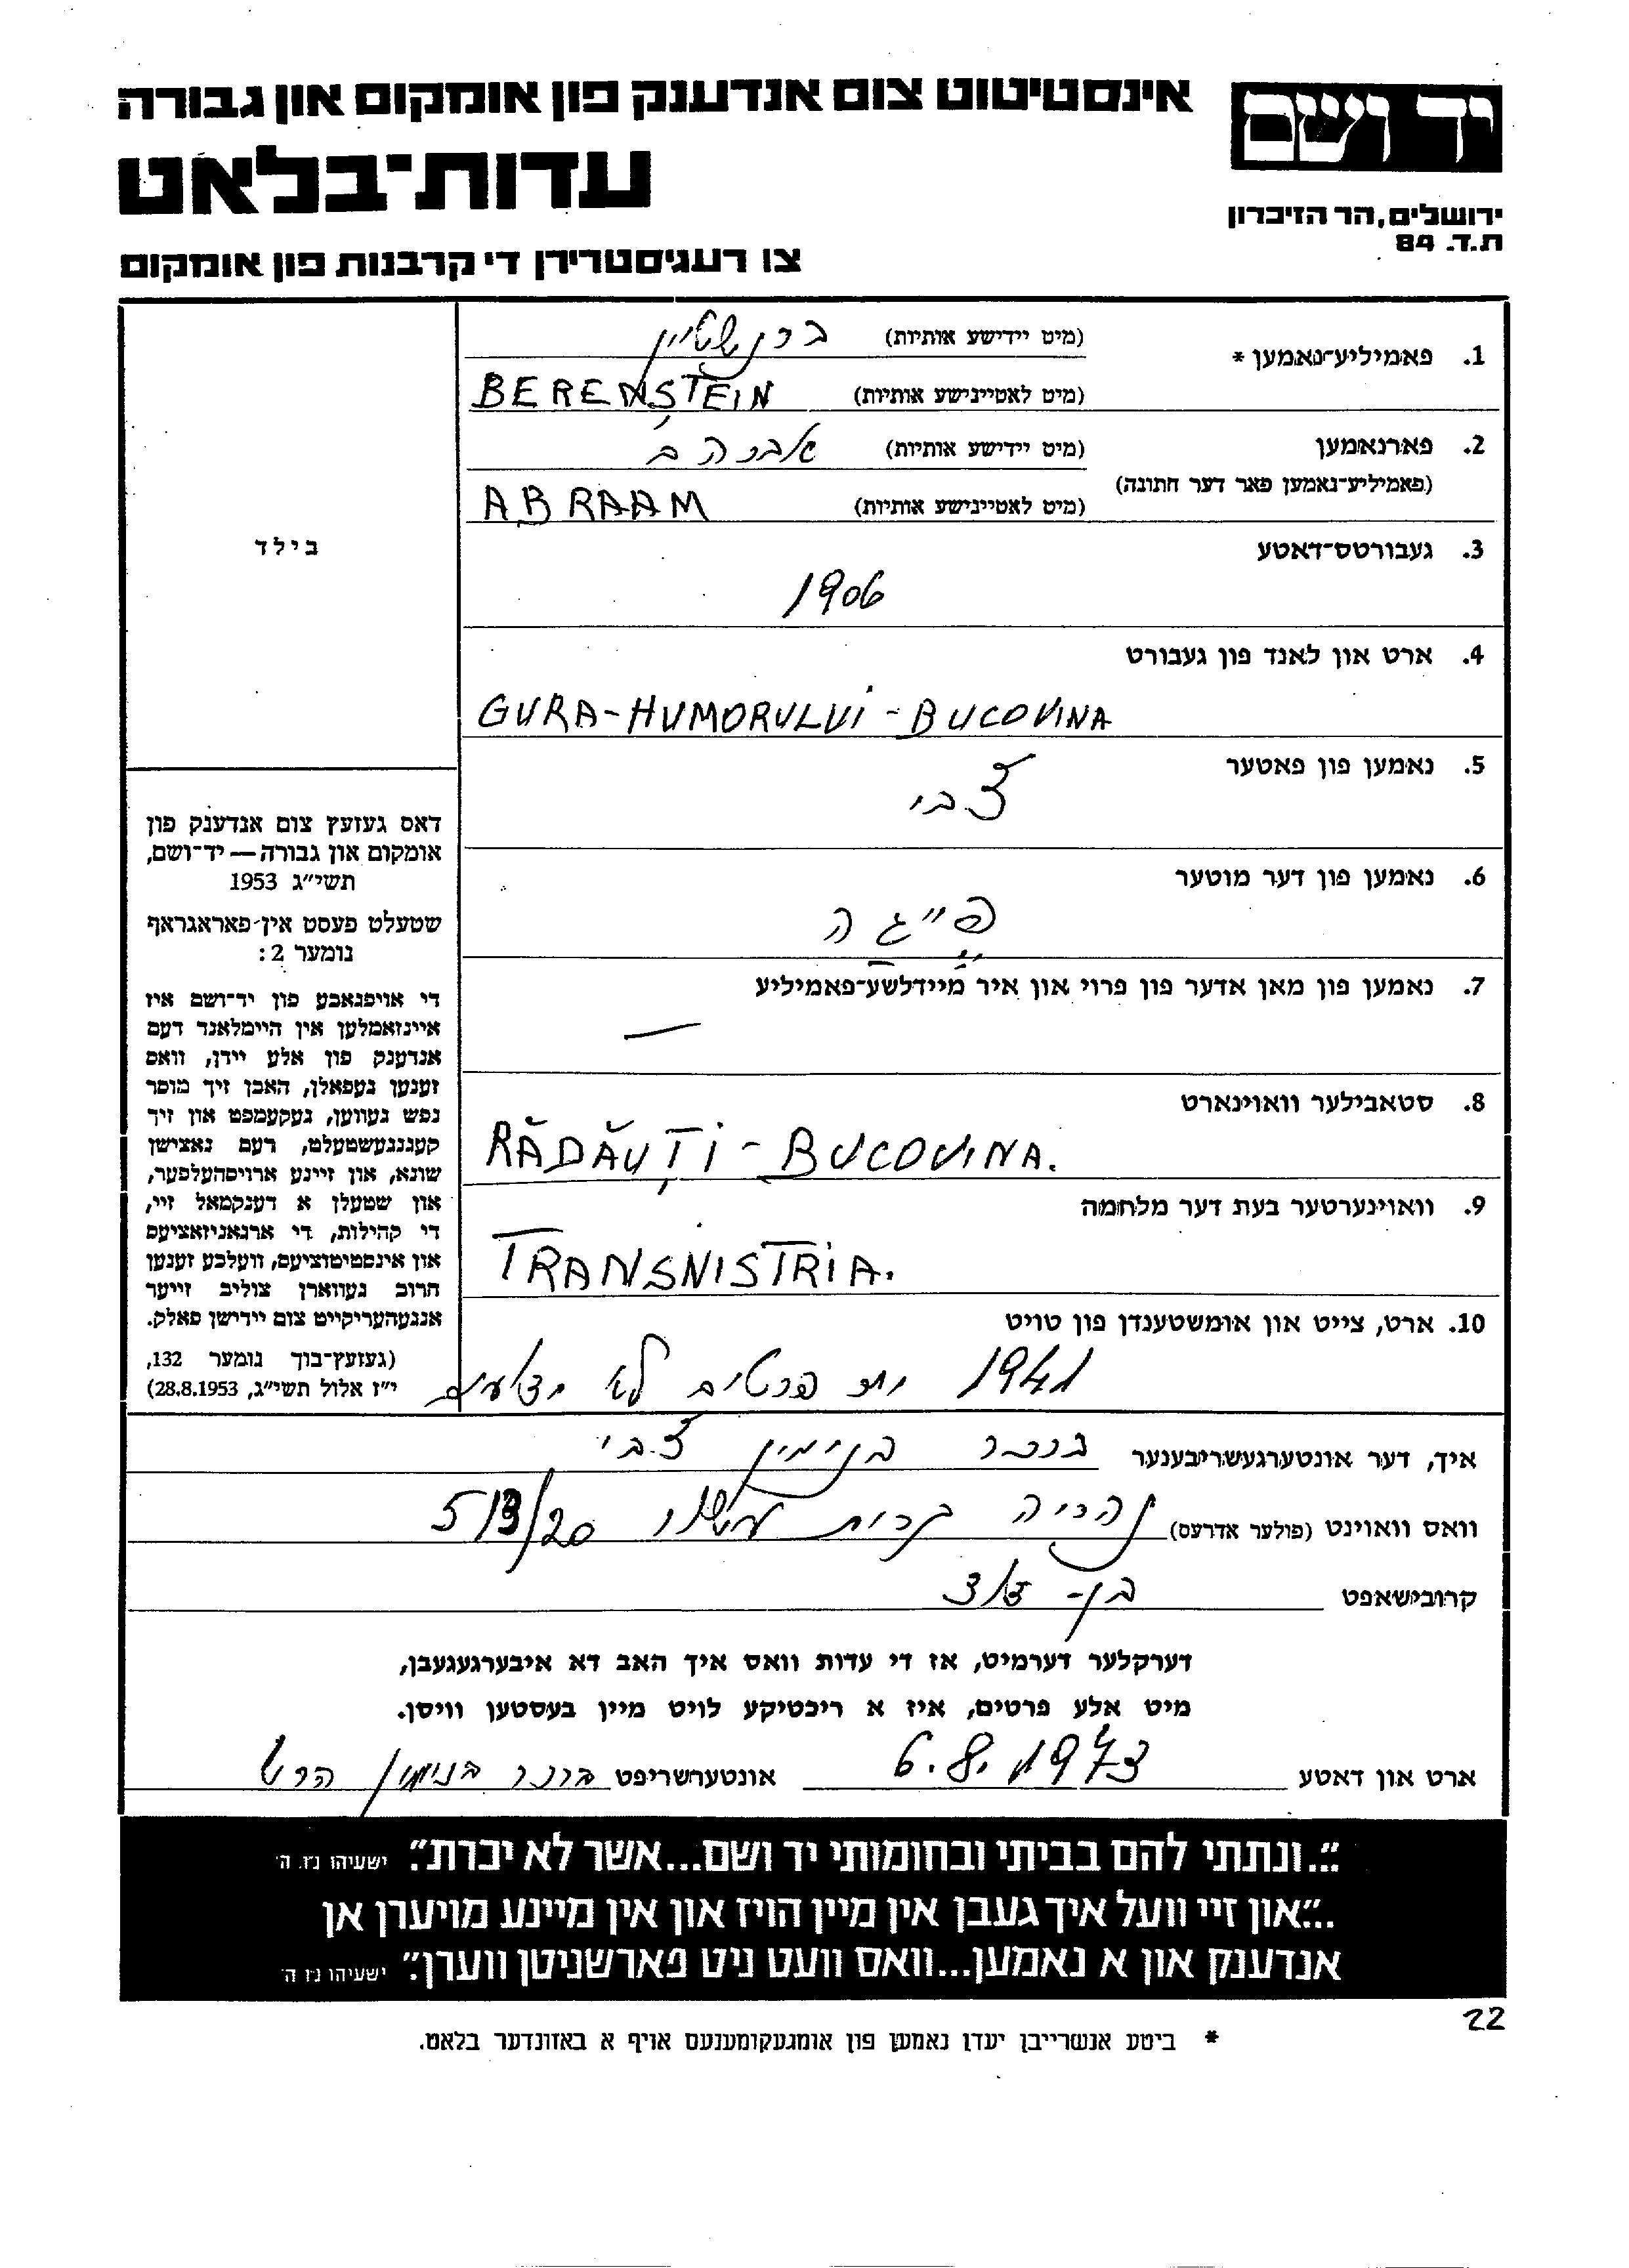 יד ושם
ירושלים, הר הזיכרון
ת.ד. 84
אינסטיטוט צום אנדענק פון אומקום און גבורה
עדות־בלאט
צו רעגיסטרירן די קרבנות פון אומקום
1. פאמיליע־נאמען * (מיט יידישע אותיות) ברנשטיין
(מיט לאטייינישע אותיות) BERENSTEIN
2. פארנאמען (מיט יידישע אותיות) אברהם
(פאמיליע־נאמען פאר דער חתונה) (מיט לאטייינישע אותיות) ABRAAM
3. געבורטס־דאטע
1906
4. ארט און לאנד פון געבורט
GURA-HUMORULUI - BUCOVINA
5. נאמען פון פאטער
צבי
6. נאמען פון דער מוטער
פייגה
7. נאמען פון מאן אדער פון פרוי און איר מיידלשע־פאמיליע
—
8. סטאבילער וואוינארט
RĂDĂUȚI - BUCOVINA.
9. וואוינערטער בעת דער מלחמה
TRANSNISTRIA.
10. ארט, צייט און אומשטענדן פון טויט
1941 פרטים לא
בילד
דאס געזעץ צום אנדענק פון
אומקום און גבורה — יד־ושם,
תשי״ג 1953
שטעלט פעסט אין פאראגראף
נומער 2:
די אויפגאבע פון יד־ושם איז
איינזאמלען אין היימלאנד דעם
אנדענק פון אלע יידן, וואס
זענען געפאלן, האבן זיך מוסר
נפש געווען, געקעמפט און זיך
קעגנגעשטעלט, דעם נאצישן
שונא, און זיינע ארויסהעלפער,
און שטעלן א דענקמאל זיי,
די קהילות, די ארגאניזאציעס
און אינסטיטוציעס, וועלכע זענען
חרוב געווארן צוליב זייער
אנגעהעריקייט צום יידישן פאלק.
(געזעץ־בוך נומער 132,
י״ז אלול תשי״ג, 28.8.1953)
איך, דער אונטערגעשריבענער ברנר בנימין צבי
וואס וואוינט (פולער אדרעס) נהריה קרית 5/3/20
קרובישאפט בן-דוד
דערקלער דערמיט, אז די עדות וואס איך האב דא איבערגעגעבן,
מיט אלע פרטים, איז א ריכטיקע לויט מיין בעסטען וויסן.
ארט און דאטע 6.8.1973 אונטערשריפט ברנר בנימין הרש
"...ונתתי להם בביתי ובחומותי יד ושם...אשר לא יכרת". ישעיהו נ״ו. ה׳
"...און זיי וועל איך געבן אין מיין הויז און אין מיינע מויערן אן
אנדענק און א נאמען...וואס וועט ניט פארשניטן ווערן". ישעיהו נ״ו ה׳
22
* ביטע אנשרייבן יעדן נאמען פון אומגעקומענעם אויף א באזונדער בלאט.